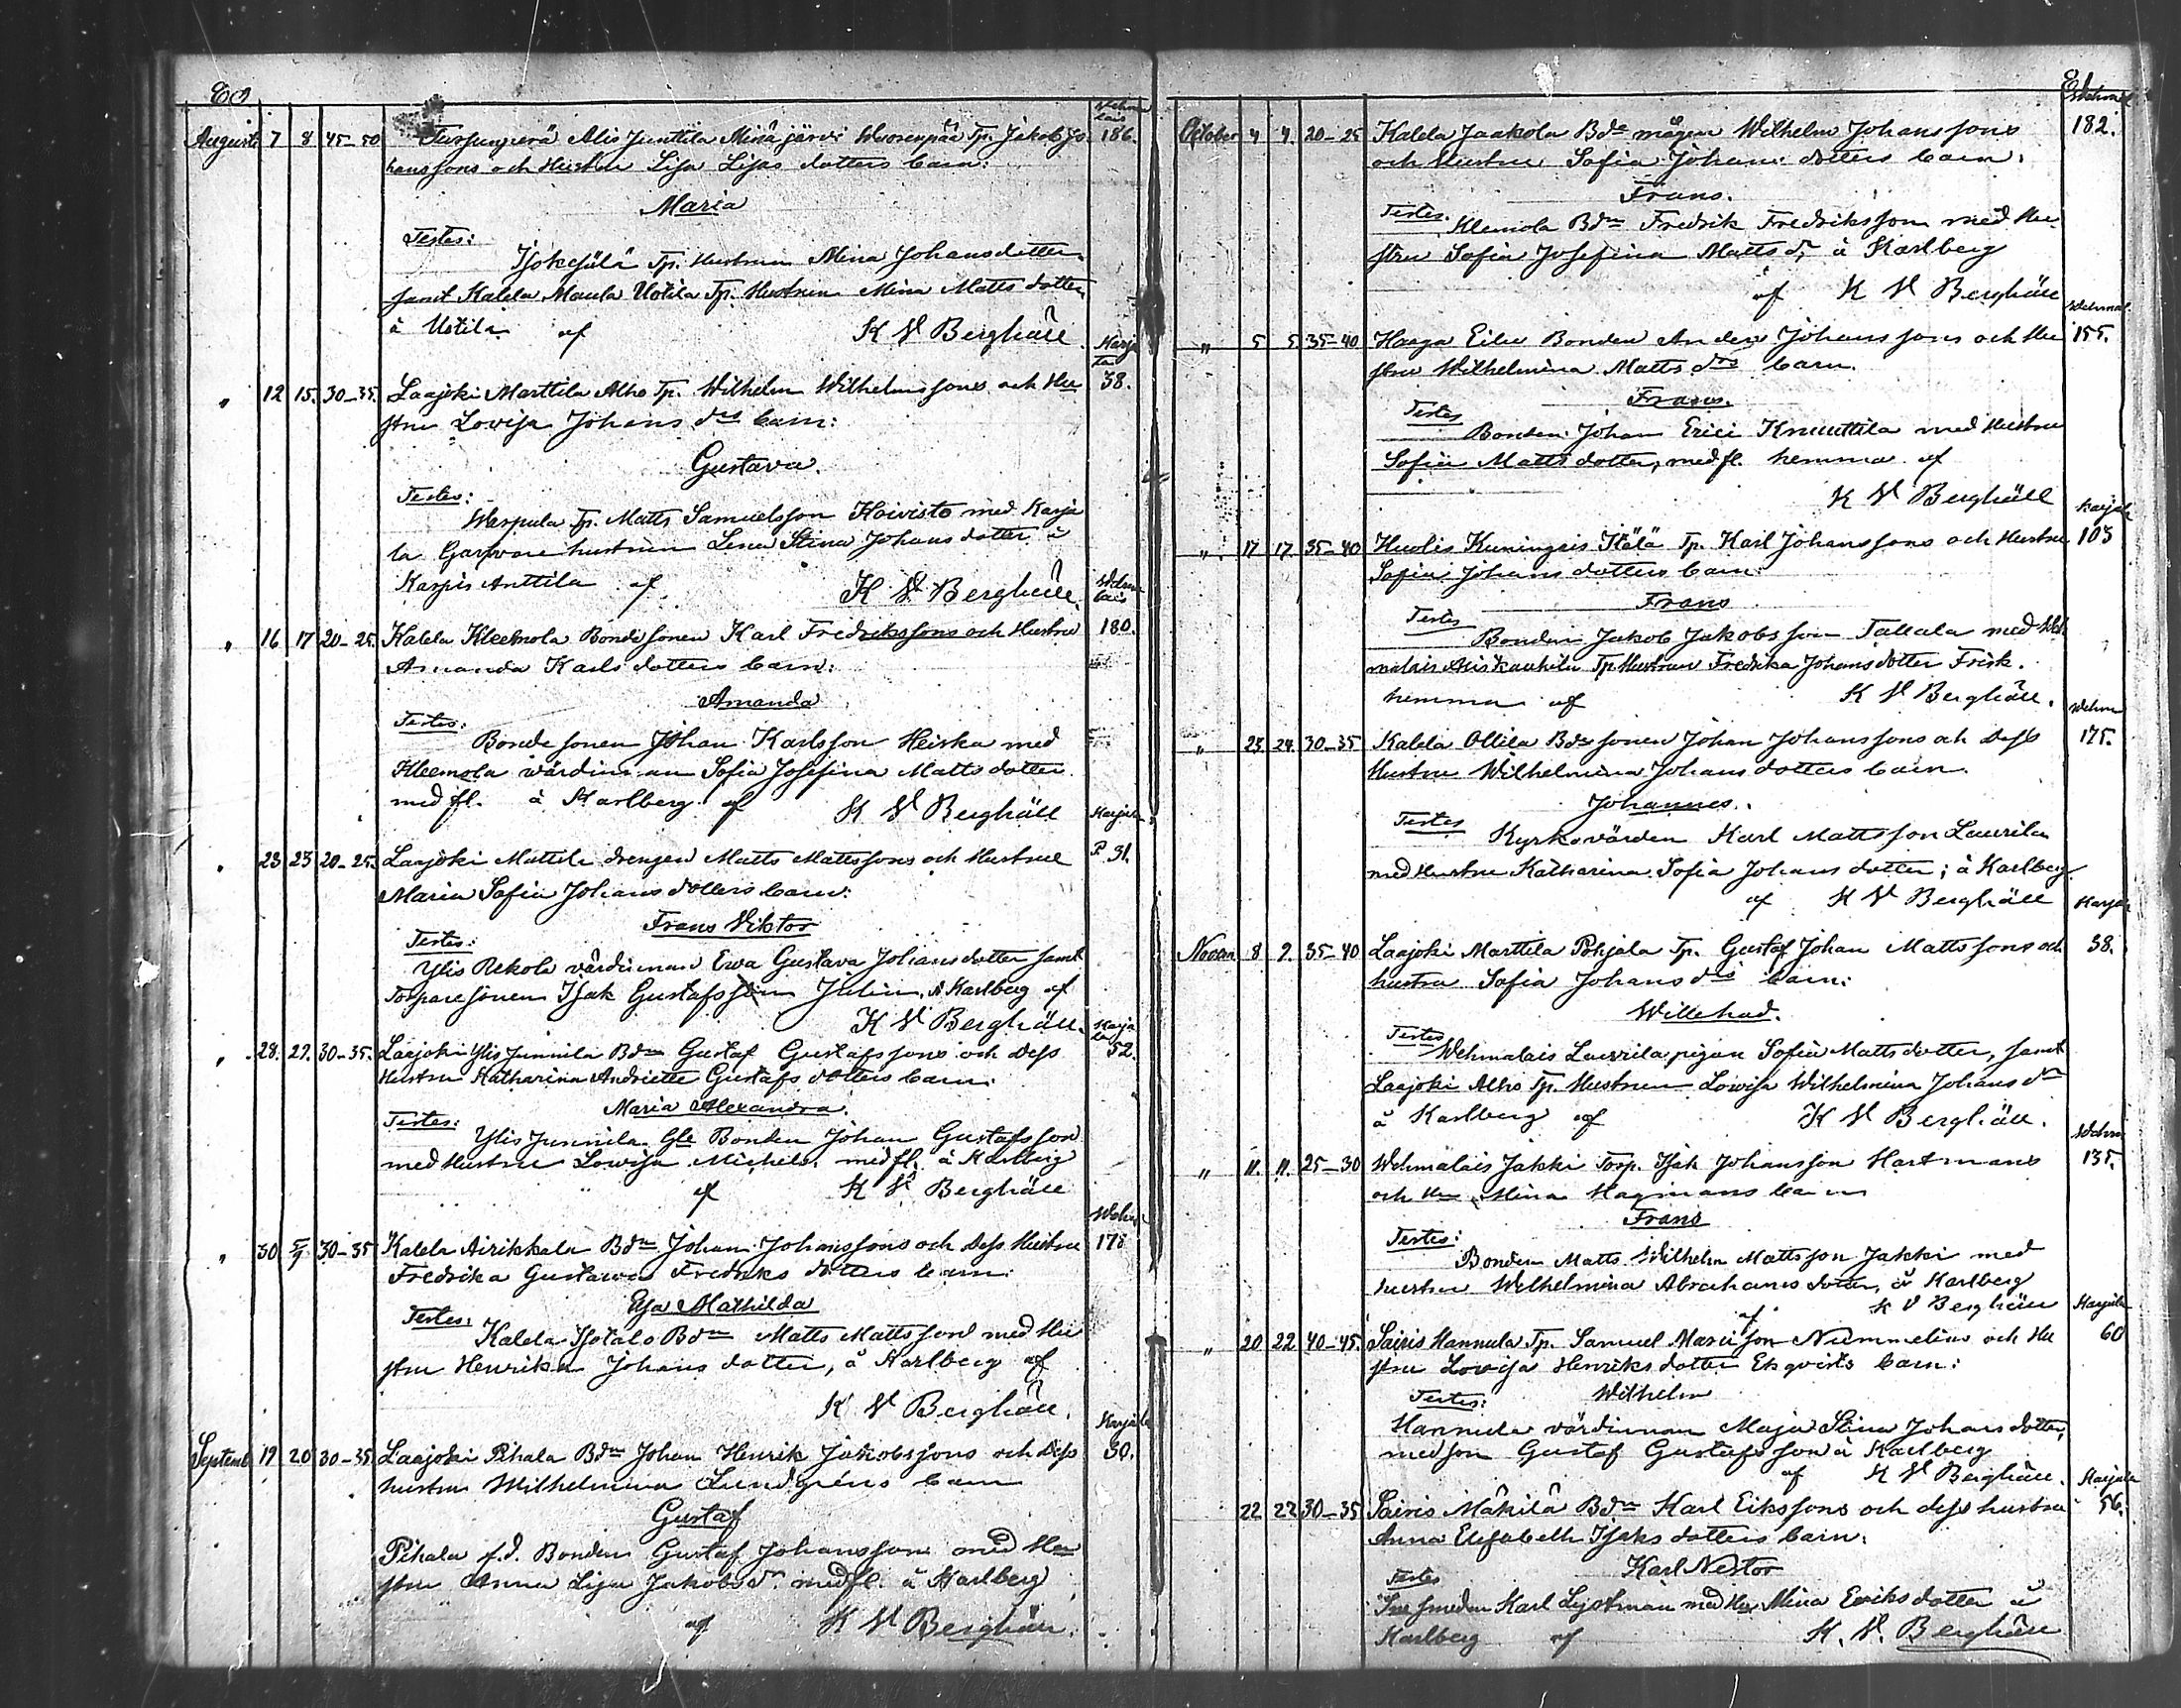 Augusti 7 8 45-50 Alis Junttila Minäjärvi Tp. Jakob Jo 186.
hanssons och Hustru Lisa Lisas dotters barn.
Maria
Testes:
Tp. Hustrun Mina Johansdotter
samt Kalela Maula Uotila Tp. Hustrun Mina Matts dotter
à Uotila af K V Berghäll
Karja
la
" 12 15. 30-35. Laajoki Marttila Alho Tp. Wilhelm Wilhelmssons och Hu 38.
stru Lovisa Johans drs barn:
Gustava.
Testes:
Tp. Matts Samuelsson Koivisto med Karja
la hustrun Lena Stina Johans dotter à
Karpis Anttila af K V Berghäll.
Wehma
lais
" 16 17 20-25. Kalela Kleemola Bonde sonen Karl Fredrikssons och Hustru 180.
Amanda Karls dotters barn:
Amanda
Testes:
Bonde sonen Johan Karlsson Heiska med
Kleemola värdinnan Sofia Josefina Matts dotter
med fl. à Karlberg af K V Berghäll
Karjala
" 23 23 20-25. Laajoki Mattila drengen Matts Mattssons och Hustrus P 31.
Maria Sofia Johans dotters barn:
Frans Viktor
Testes:
Ylis Rekola värdinnan Ewa Gustava Johans dotter samt
Torpare sonen Isak Gustafsson Julin, à Karlberg af
K V Berghäll.
Karja
la
" 28. 29. 30-35. Laajoki Ylis Junnila Bdn Gustaf Gustafssons och dess 32.
Hustru Katharina Andriette Gustafs dotters barn:
Maria Alexandra.
Testes:
Ylis Junnila Gle Bonden Johan Gustafsson
med Hustru Lowisa Michels. med fl. à Karlberg
af K V Berghäll
Wehm
" 30 5/9 30-35 Kalela Airikkala Bdn Johan Johanssons och dess Hustru 178
Fredrika Gustawa Fredriks dotters barn:
Eva Mathilda
Testes:
Kalela Isotalo Bdn Matts Mattsson med Hu
stru Henrika Johans dotter, à Karlberg af
K V Berghäll.
Karjala
Septemb 19 20 30-35 Laajoki Pihala Bdn Johan Henrik Jakobssons och dess 30.
hustru Wilhelmina Lundgréns barn
Gustaf
Pihala f.d. Bonden Gustaf Johansson med Hu
stru Anna Lisa Jakobs dr. med fl. à Karlberg
af K V Berghäll.
October 4 4. 20-25 Kalela Jaakola Bde mågen Wilhelm Johanssons 182.
och Hustru Sofia Johans dotters barn.
Frans.
Testes.
Klemola Bdn Fredrik Fredriksson med Hu
stru Sofia Josefina Matts dr à Karlberg
af K V Berghäll
Wehmal.
" 5 5 35-40 Haaga Eilu Bonden Anders Johanssons och Hu 155.
stru Wilhelmina Matts drs barn.
Frans.
Testes
Bonden Johan Erici Knuuttila med Hustru
Sofia Matts dotter, med fl. hemma af
K V Berghäll
Karjala
" 17 17 35-40 Huolis Kuningais Itälä Tp. Karl Johanssons och Hustru 103
Sofia Johans dotters barn:
Frans
Testes
Bonden Jakob Jakobsson Tallala med Weh
malais Tp. Hustrun Fredrika Johans dotter Frisk.
hemma af K V Berghäll.
Wehm
" 23 24. 30-35 Kalela Ollila Bde sonen Johan Johanssons och dess 175.
Hustru Wilhelmina Johans dotters barn.
Johannes.
Testes
Kyrkovärden Karl Mattsson Laurila
med Hustru Katharina Sofia Johans dotter; à Karlberg
af K V Berghäll
Karjala
Novem 8 9. 35-40 Laajoki Marttila Pohjala Tp. Gustaf Johan Mattssons och 38.
hustru Sofia Johans drs barn:
Willehad.
Testes
Wehmalais Laurila pigan Sofia Matts dotter, samt
Laajoki Alho Tp. Hustrun Lowisa Wilhelmina Johans dr
à Karlberg af K V Berghäll.
Wehm
" 11. 11. 25-30 Wehmalais Jakki Torp. Isak Johansson Hartmans 135.
och Hu Mina Hagmans barn
Frans
Testes:
Bonden Matts Wilhelm Mattsson Jakki med
hustru Wilhelmina Abrahams dotter, à Karlberg
af K V Berghäll
Karjala
" 20 22 40-45. Sairis Hannula Tp. Samuel Nummelins och Hu 60
stru Lovisa Henriks dotter Ekqvists barn:
Testes: Wilhelm
Hannula värdinnan Maja Stina Johans dotter,
med son Gustaf Gustafsson à Karlberg
af K V Berghäll.
Karjala
22 22 30-35 Sairis Mäkilä Bdn Karl Erikssons och dess hustru 56.
Anna Elisabeth Isaks dotters barn:
Karl Nestor
Testes
smeden Karl med Hu Mina Eriks dotter à
Karlberg af K. V. Berghäll